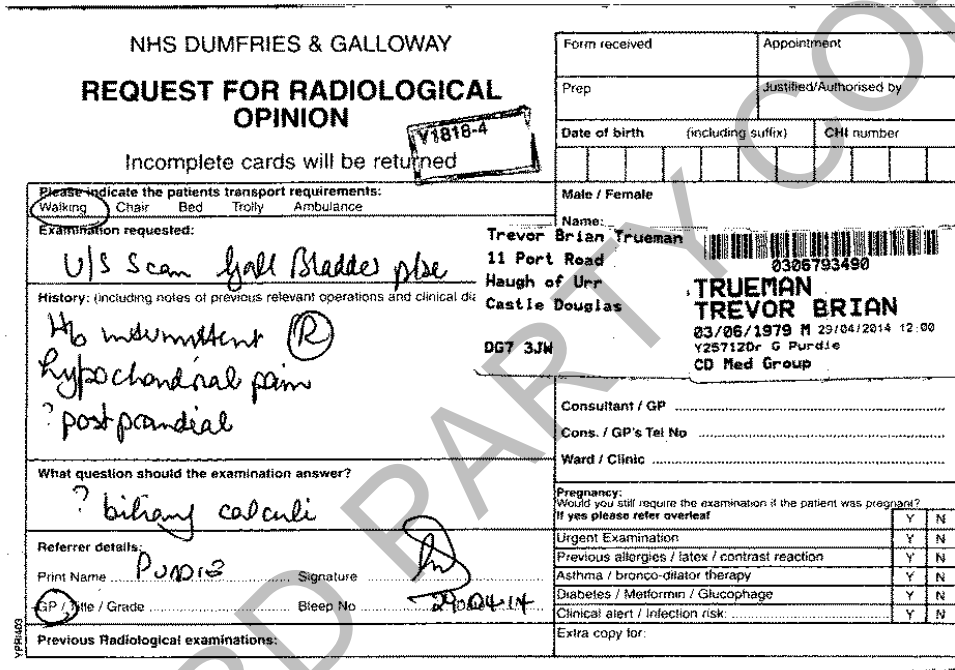 NHS DUMFRIES & GALLOWAY
REQUEST FOR RADIOLOGICAL
OPINION
Y1818-4
Incomplete cards will be returned
Please indicate the patients transport requirements:
Walking Chair Bed Trolly Ambulance
Examination requested:
U/S Scan Gall Bladder plse
History: (including notes of previous relevant operations and clinical
H/o intermittent (R)
hypochondrial pain
? postprandial
What question should the examination answer?
? biliary calculi
Referrer details:
Print Name PURDIE Signature
GP / Title / Grade Bleep No 29.04.14
Previous Radiological examinations:
YPRI403
Form received Appointment
Prep Justified/Authorised by
Date of birth (including suffix) CHI number
Male / Female
Name:
Trevor Brian Trueman
11 Port Road
Haugh of Urr
Castle Douglas
DG7 3JW
0306793490
TRUEMAN
TREVOR BRIAN
03/06/1979 M 29/04/2014 12:00
Y25712Dr G Purdie
CD Med Group
Consultant / GP
Cons. / GP's Tel No
Ward / Clinic
Pregnancy:
Would you still require the examination if the patient was pregnant?
If yes please refer overleaf Y N
Urgent Examination Y N
Previous allergies / latex / contrast reaction Y N
Asthma / bronco-dilator therapy Y N
Diabetes / Metformin / Glucophage Y N
Clinical alert / Infection risk: Y N
Extra copy for:
RD PARTY CO